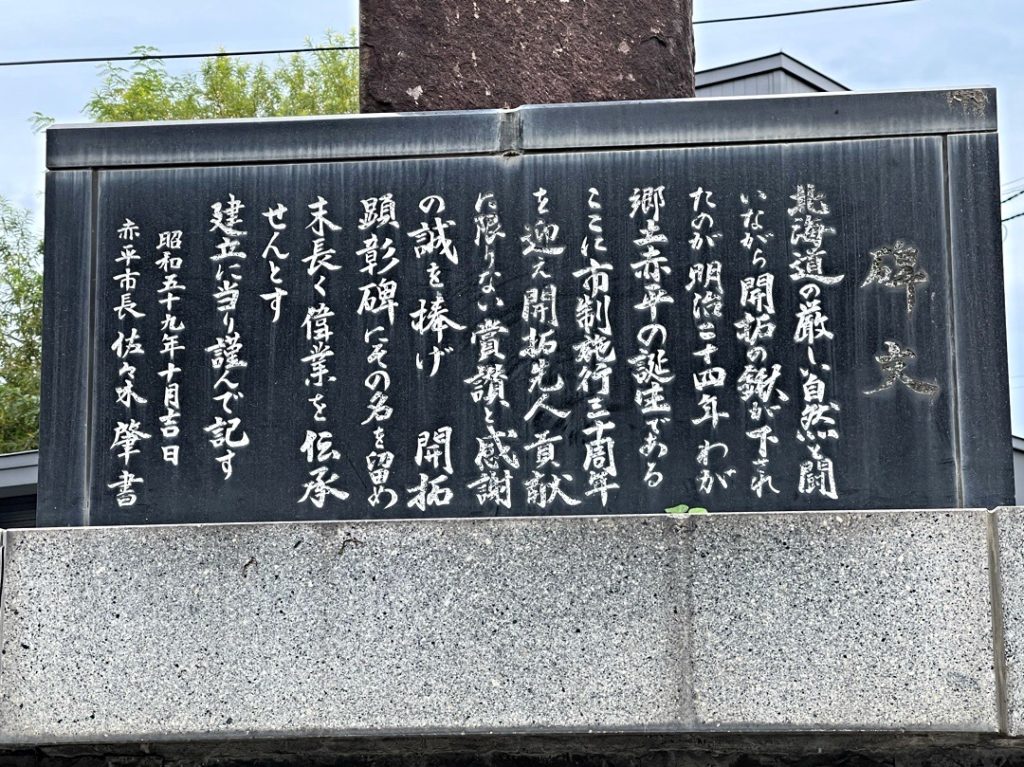 碑文
北海道の厳しい自然と闘
いながら開拓の鍬が下され
たのが 明治二十四年 わが
郷土赤平の誕生である
ここに市制施行三十周年
を迎え開拓先人の貢献
に限りない賞讃と感謝
の誠を捧げ 開拓
顕彰碑にその名を留め
末長く偉業を伝承
せんとす
建立に当り謹んで記す
昭和五十九年十月吉日
赤平市長 佐々木 肇 書